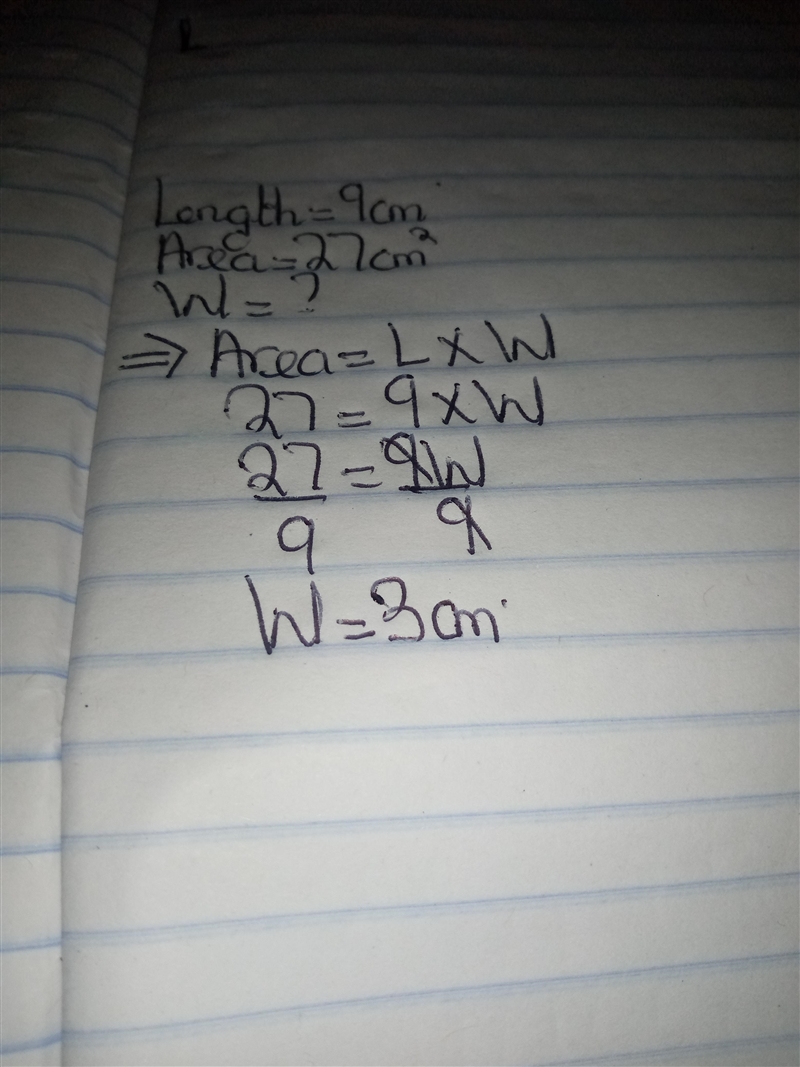 L
Length = 9cm
Area = 27cm²
W = ?
⇒ Area = L × W
27 = 9 × W
27/9 = 9W/9
W = 3cm